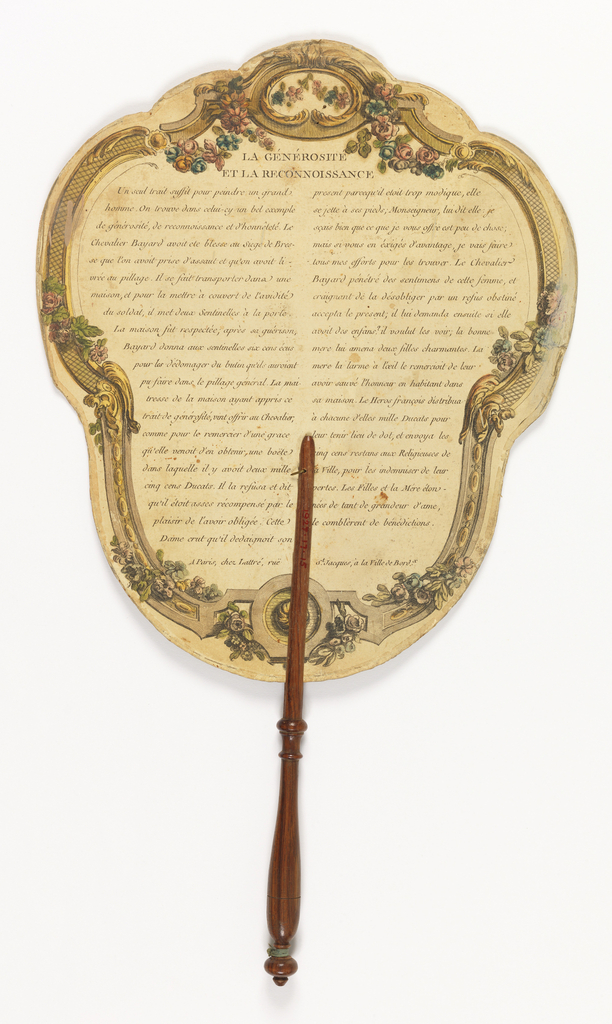 LA GENÉROSITE
ET LA RECONNOISSANCE
Un seul trait suffit pour peindre un grand
homme. On trouve dans celui-cy un bel exemple
de générosité, de reconnoissance et d'honnêteté. Le
Chevalier Bayard avoit eté blessé au Siege de Bres-
se que l'on avoit prise d'assaut et qu'on avoit li-
vrée au pillage. Il se fait transporter dans une
maison, et pour la mettre à couvert de l'avidité
du soldat, il met deux Sentinelles à la porte.
La maison fut respectée; après sa guérison,
Bayard donna aux sentinelles six cens écus
pour les dédomager du butin qu'ils auroient
pu faire dans le pillage général. La mai
tresse de la maison ayant appris ce
trait de générosité, vint offrir au Chevalier,
comme pour le remercier d'une grace
qu'elle venoit d'en obtenir, une boëte
dans laquelle il y avoit deux mille
cinq cens Ducats. Il la refusa et dit
qu'il étoit assés récompensé par le
plaisir de l'avoir obligée. Cette
Dame crut qu'il dedaignoit son
présent parcequ'il etoit trop modique, elle
se jette à ses pieds; Monseigneur, lui dit elle: je
sçais bien que ce que je vous offre est peu de chose;
mais si vous en éxigés d'avantage, je vais faire
tous mes efforts pour les trouver. Le Chevalier
Bayard pénétré des sentimens de cette femme, et
craignant de la désobliger par un refus obstiné
accepta le present; il lui demanda ensuite si elle
avoit des enfans? il voulut les voir; la bonne
mere lui amena deux filles charmantes. La
mere la larme à l'œil le remercioit de leur
avoir sauvé l'honneur en habitant dans
sa maison. Le Héros françois distribua
à chacune d'elles mille Ducats pour
leur tenir lieu de dot, et envoya les
cinq cens restans aux Religieuses de
la Ville, pour les indemniser de leur
pertes. Les Filles et la Mère éton-
nées de tant de grandeur d'ame,
le comblèrent de bénédictions.
A Paris, chez Lattré, rue St. Jacques, à la Ville de Bord.x